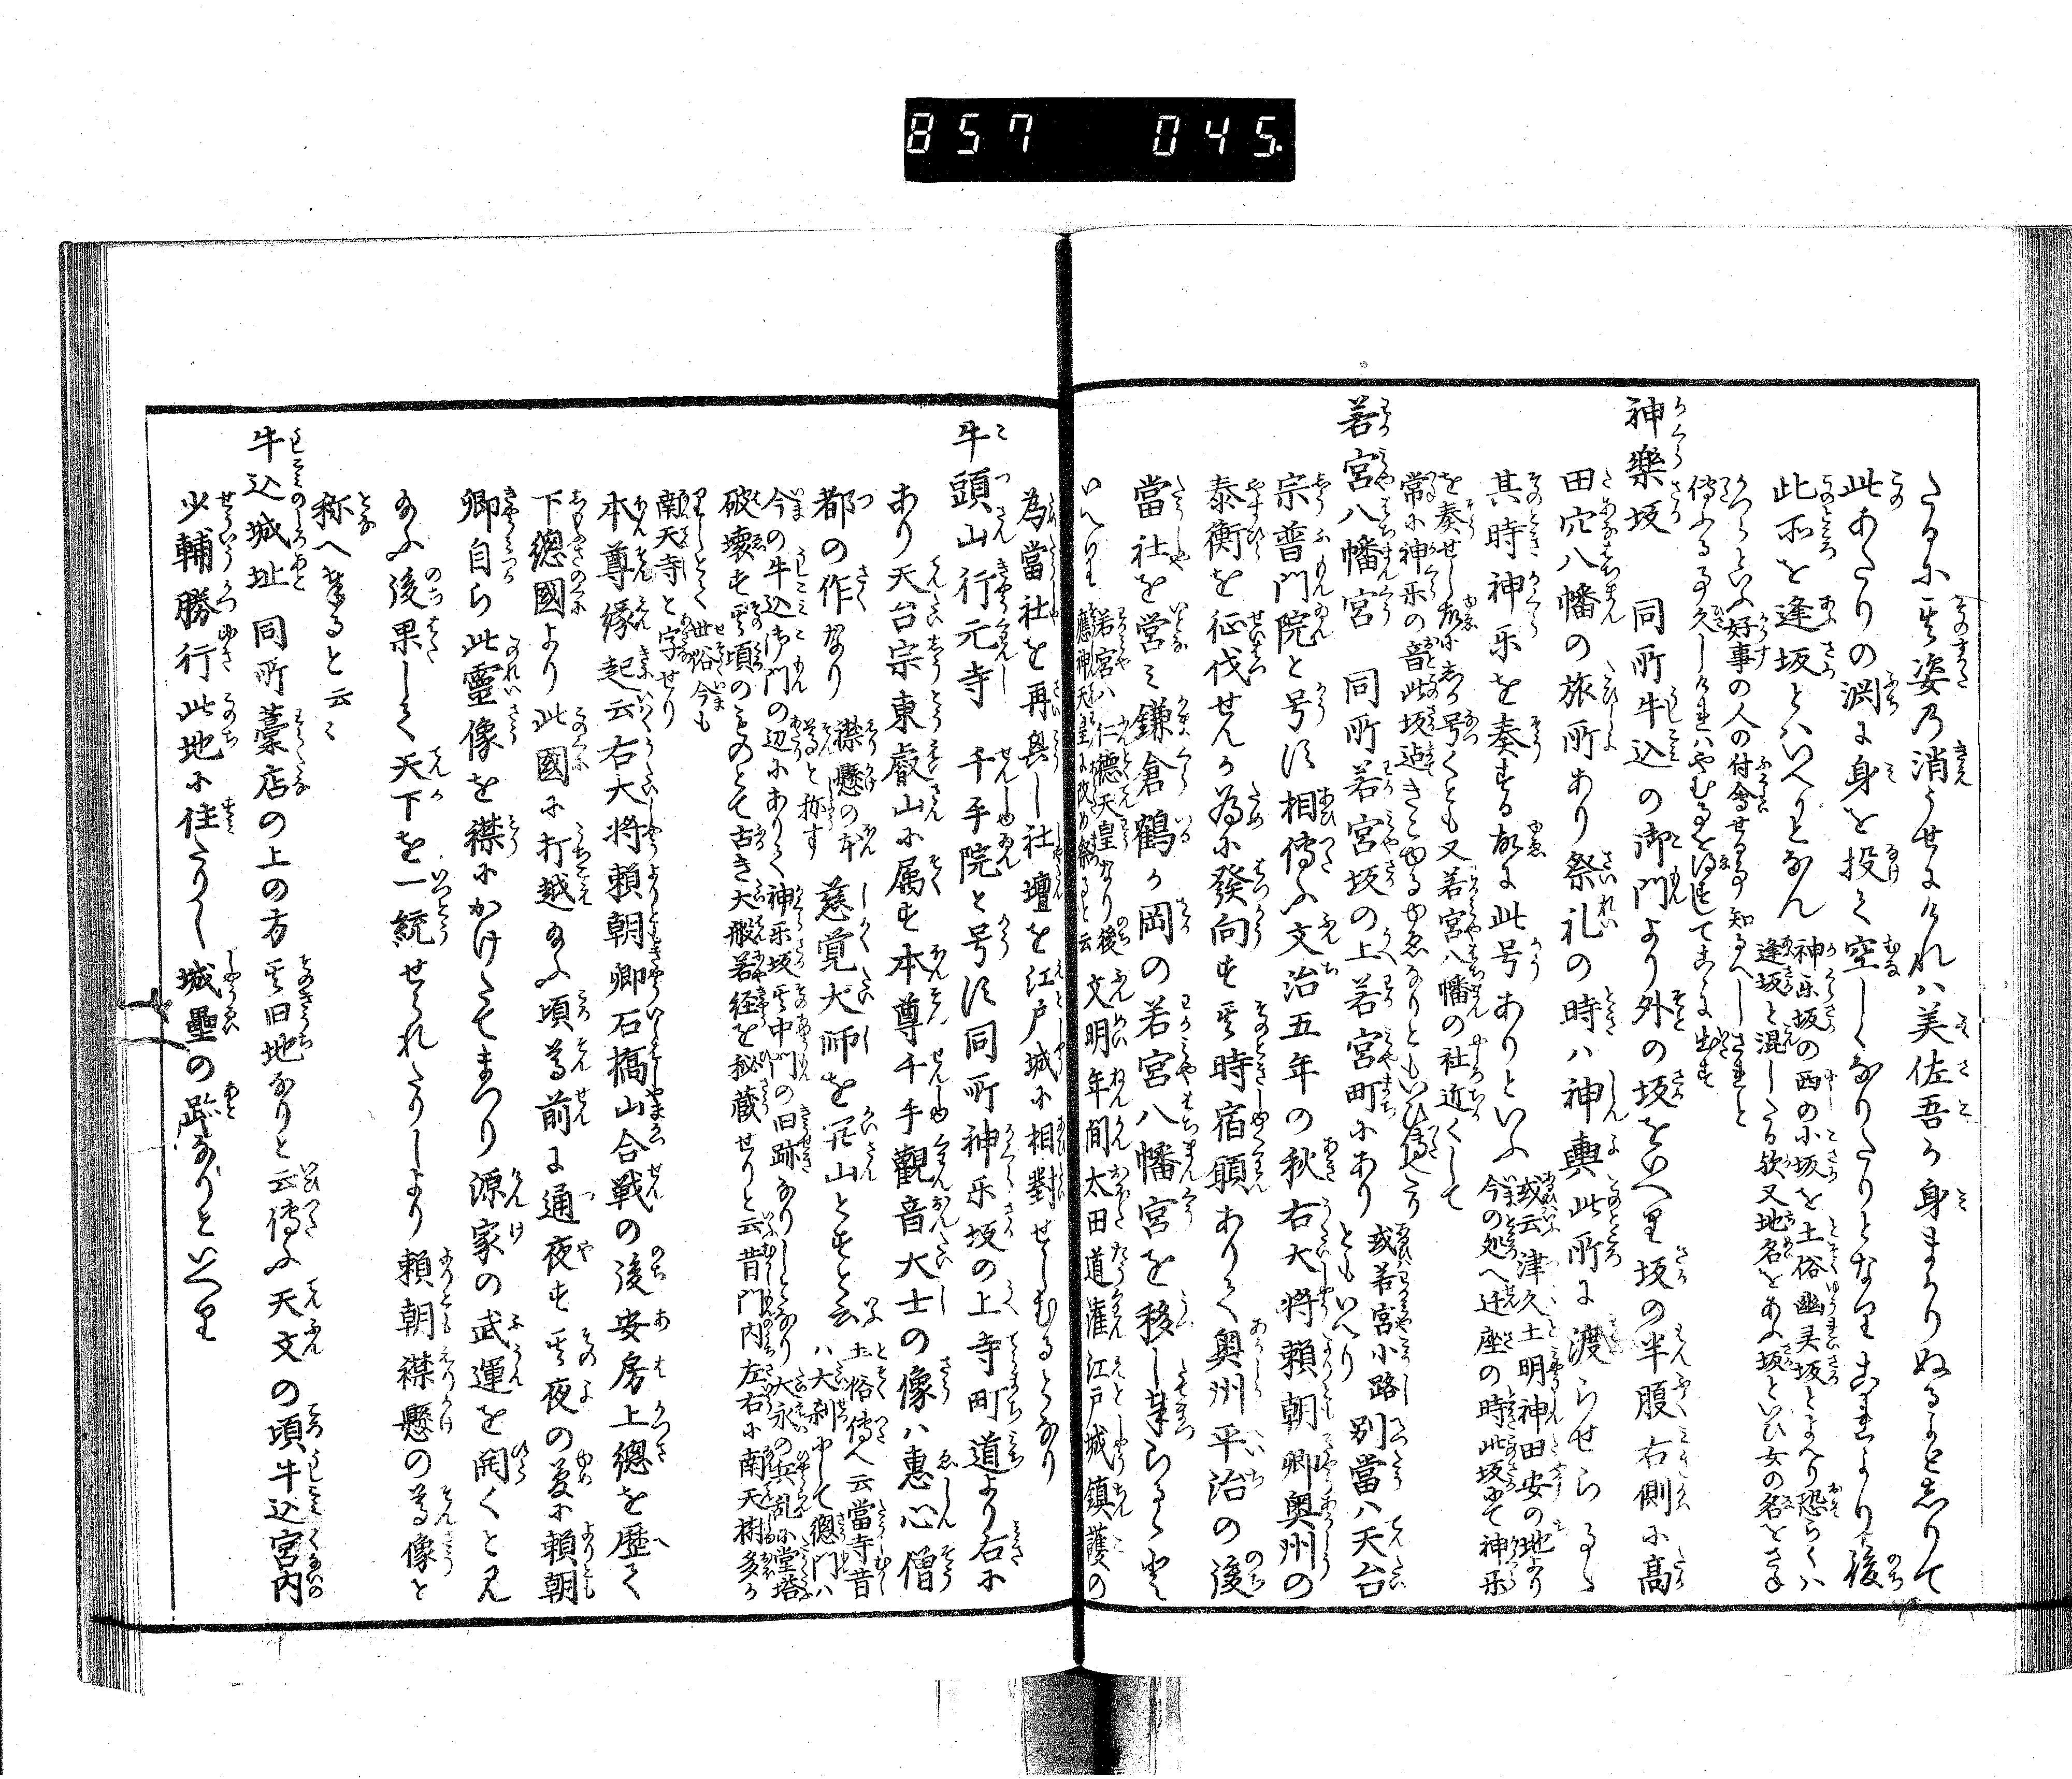 857 045.
たるに其姿乃消うせにけれハ美佐吾か身まかりぬるよと志りて
此あたりの淵に身を投て空しくなりたりとなりこれより後
此所を逢坂とハいへりとなん 神楽坂の西の小坂を土俗幽灵坂とよへり恐らくハ
逢坂と混したる歟又地名をあふ坂といひ女の名をさね
かつらといふ好事の人の付會せる事知るへしされと
傳ふる事久しけれハやむを得すしてこゝに出す
神樂坂 同所牛込の御門より外の坂をいへり坂の半腹右側に高
田穴八幡の旅所あり祭礼の時ハ神輿此所に渡らせらるゝ
其時神乐を奏する故に此号ありといふ 或云津久土明神田安の地より
今の処へ迁座の時此坂にて神乐
を奏せし故にしか号くとも又若宮八幡の社近くして
常に神乐の音此坂迠きこゆるゆゑなりともいひ傳へたり
若宮八幡宮 同所若宮坂の上若宮町にあり 或若宮小路
ともいへり 別當ハ天台
宗普門院と号す相傳ふ文治五年の秋右大将頼朝卿奥州の
泰衡を征伐せんか為に發向す其時宿願ありて奥州平治の後
當社を営ミ鎌倉鶴か岡の若宮八幡宮を移し奉らるゝと
いへり 若宮ハ仁德天皇なり後
應神天皇に改め祭ると云 文明年間太田道灌江戸城鎮護の
為當社を再興し社壇を江戸城に相對せしむるとなり
牛頭山行元寺 千手院と号す同所神乐坂の上寺町道より右に
あり天台宗東叡山に属す本尊千手觀音大士の像ハ惠心僧
都の作なり 襟懸の本
尊と称す 慈覚大師を開山とすと云 土俗傳へ云當寺昔
ハ大刹にして總門ハ
今の牛込御門の辺にありて神乐坂其中門の旧跡なりしとなり大永の兵乱に堂塔
破壊す其頃のものとて古き大般若経を秘蔵せりと云昔門内左右に南天樹多か
りしとて世俗今も
南天寺と字せり
本尊縁起云右大将頼朝卿石橋山合戦の後安房上總を歴て
下總國より此國に打越給ふ頃尊前に通夜す其夜の夢に頼朝
卿自ら此靈像を襟にかけたてまつり源家の武運を開くと見
給ふ後果して天下を一統せられたりしより頼朝襟懸の尊像と
称へ奉ると云々
牛込城址 同所藁店の上の方其旧地なりと云傳ふ天文の頃牛込宮内
少輔勝行此地に住たりし城壘の跡なりといへり